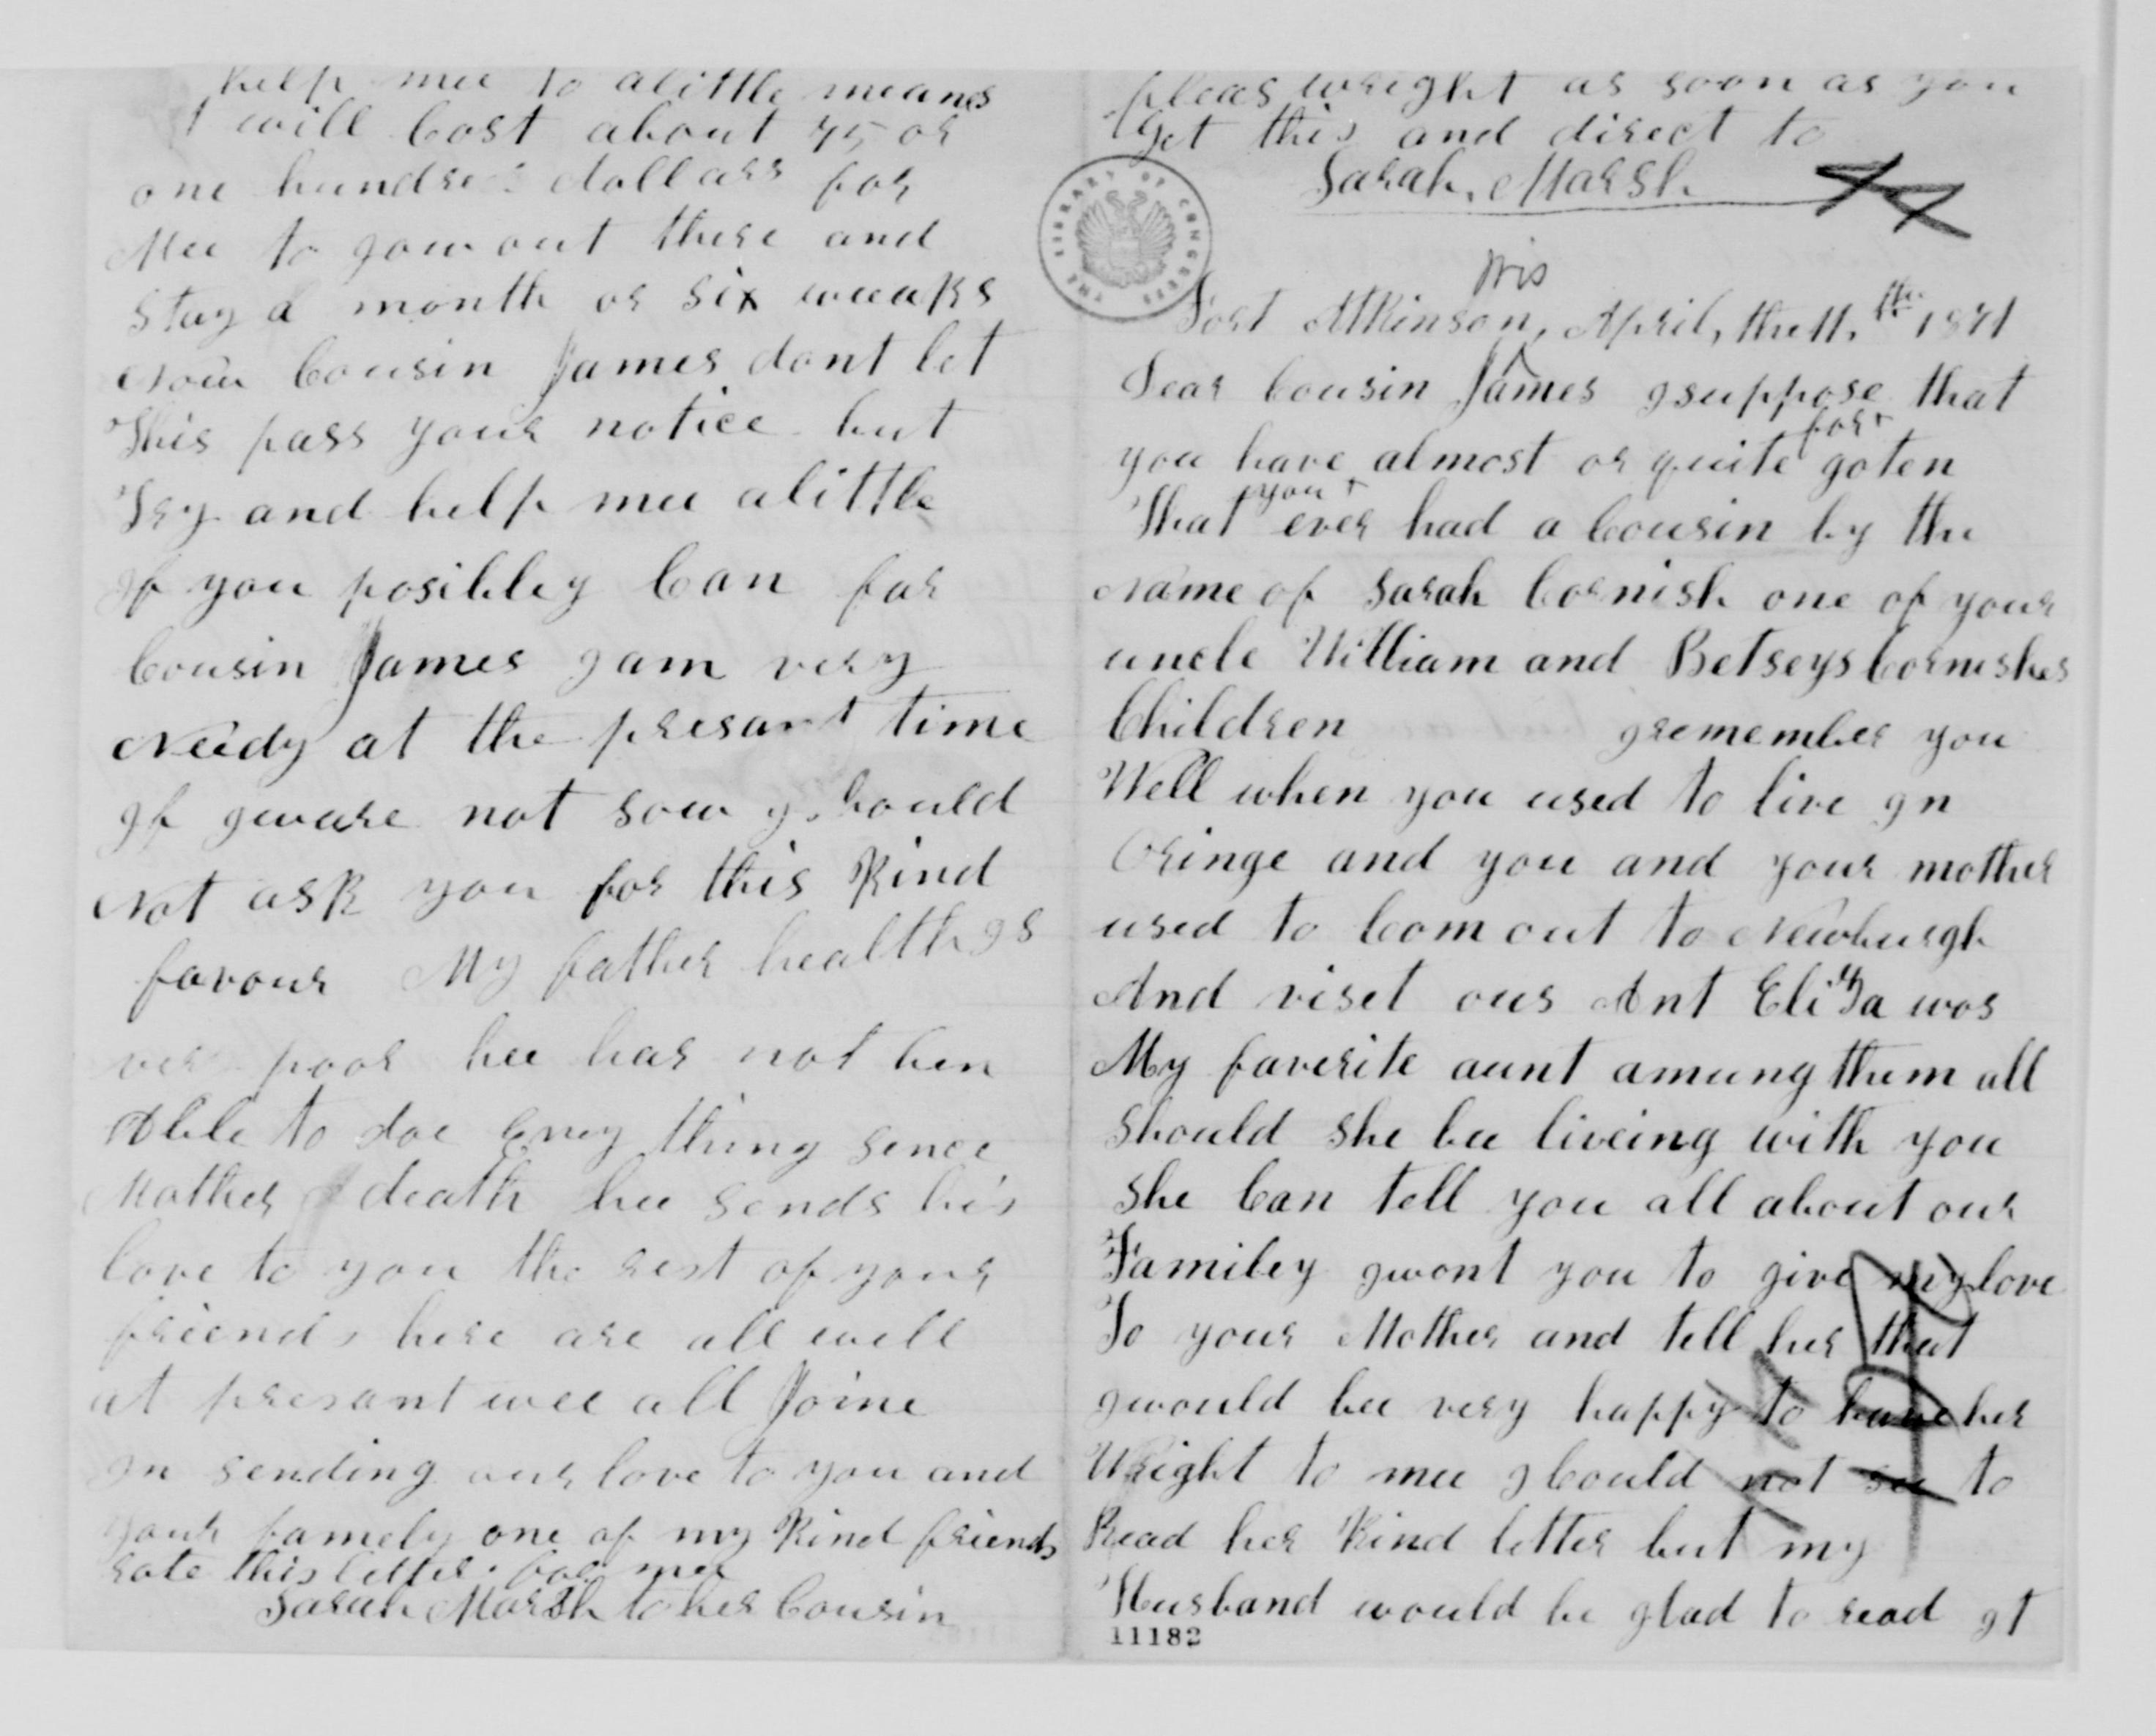 help mee to alittle means
t will Cost about 75 or
one hundred dollars for
Mee to gow out there and
stay a month or six weeaks
Now Cousin James dont let
This pass your notice but
Try and help mee alittle
If you posibley Can for
Cousin James I am very
Needy at the presant time
If I weare not sow I should
Not ask you for this kind
favour My father health Is
very poor hee has not ben
Able to doe Eney thing sence
Mother death hee sends his
love to you the rest of your
friends here are all well
at presant wee all Joine
In sending our love to you and
your famely one of my kind friends
rote this letter for mee
Sarah Marsh to her Cousin
pleas wright as soon as you
get this and direct to
Sarah, Marsh
THE LIBRARY OF CONGRESS
Wis
Fort Atkinson, April, the 11,th 1871
Dear Cousin James I suppose that
you have almost or quite for goten
That you ever had a Cousin by the
Name of Sarah Cornish one of your
uncle William and Betseys Cornishes
Children I remember you
Well when you used to live In
Oringe and you and your mother
used to Com out to Newburgh
And viset ous Ant Eliza wos
My faverite aunt amung them all
Should she bee liveing with you
she Can tell you all about our
Familey I wont you to give my love
To your Mother and tell her that
I would bee very happy to have her
Wright to mee I Could not see to
Read her kind letter but my
Husband would be glad to read It
11182